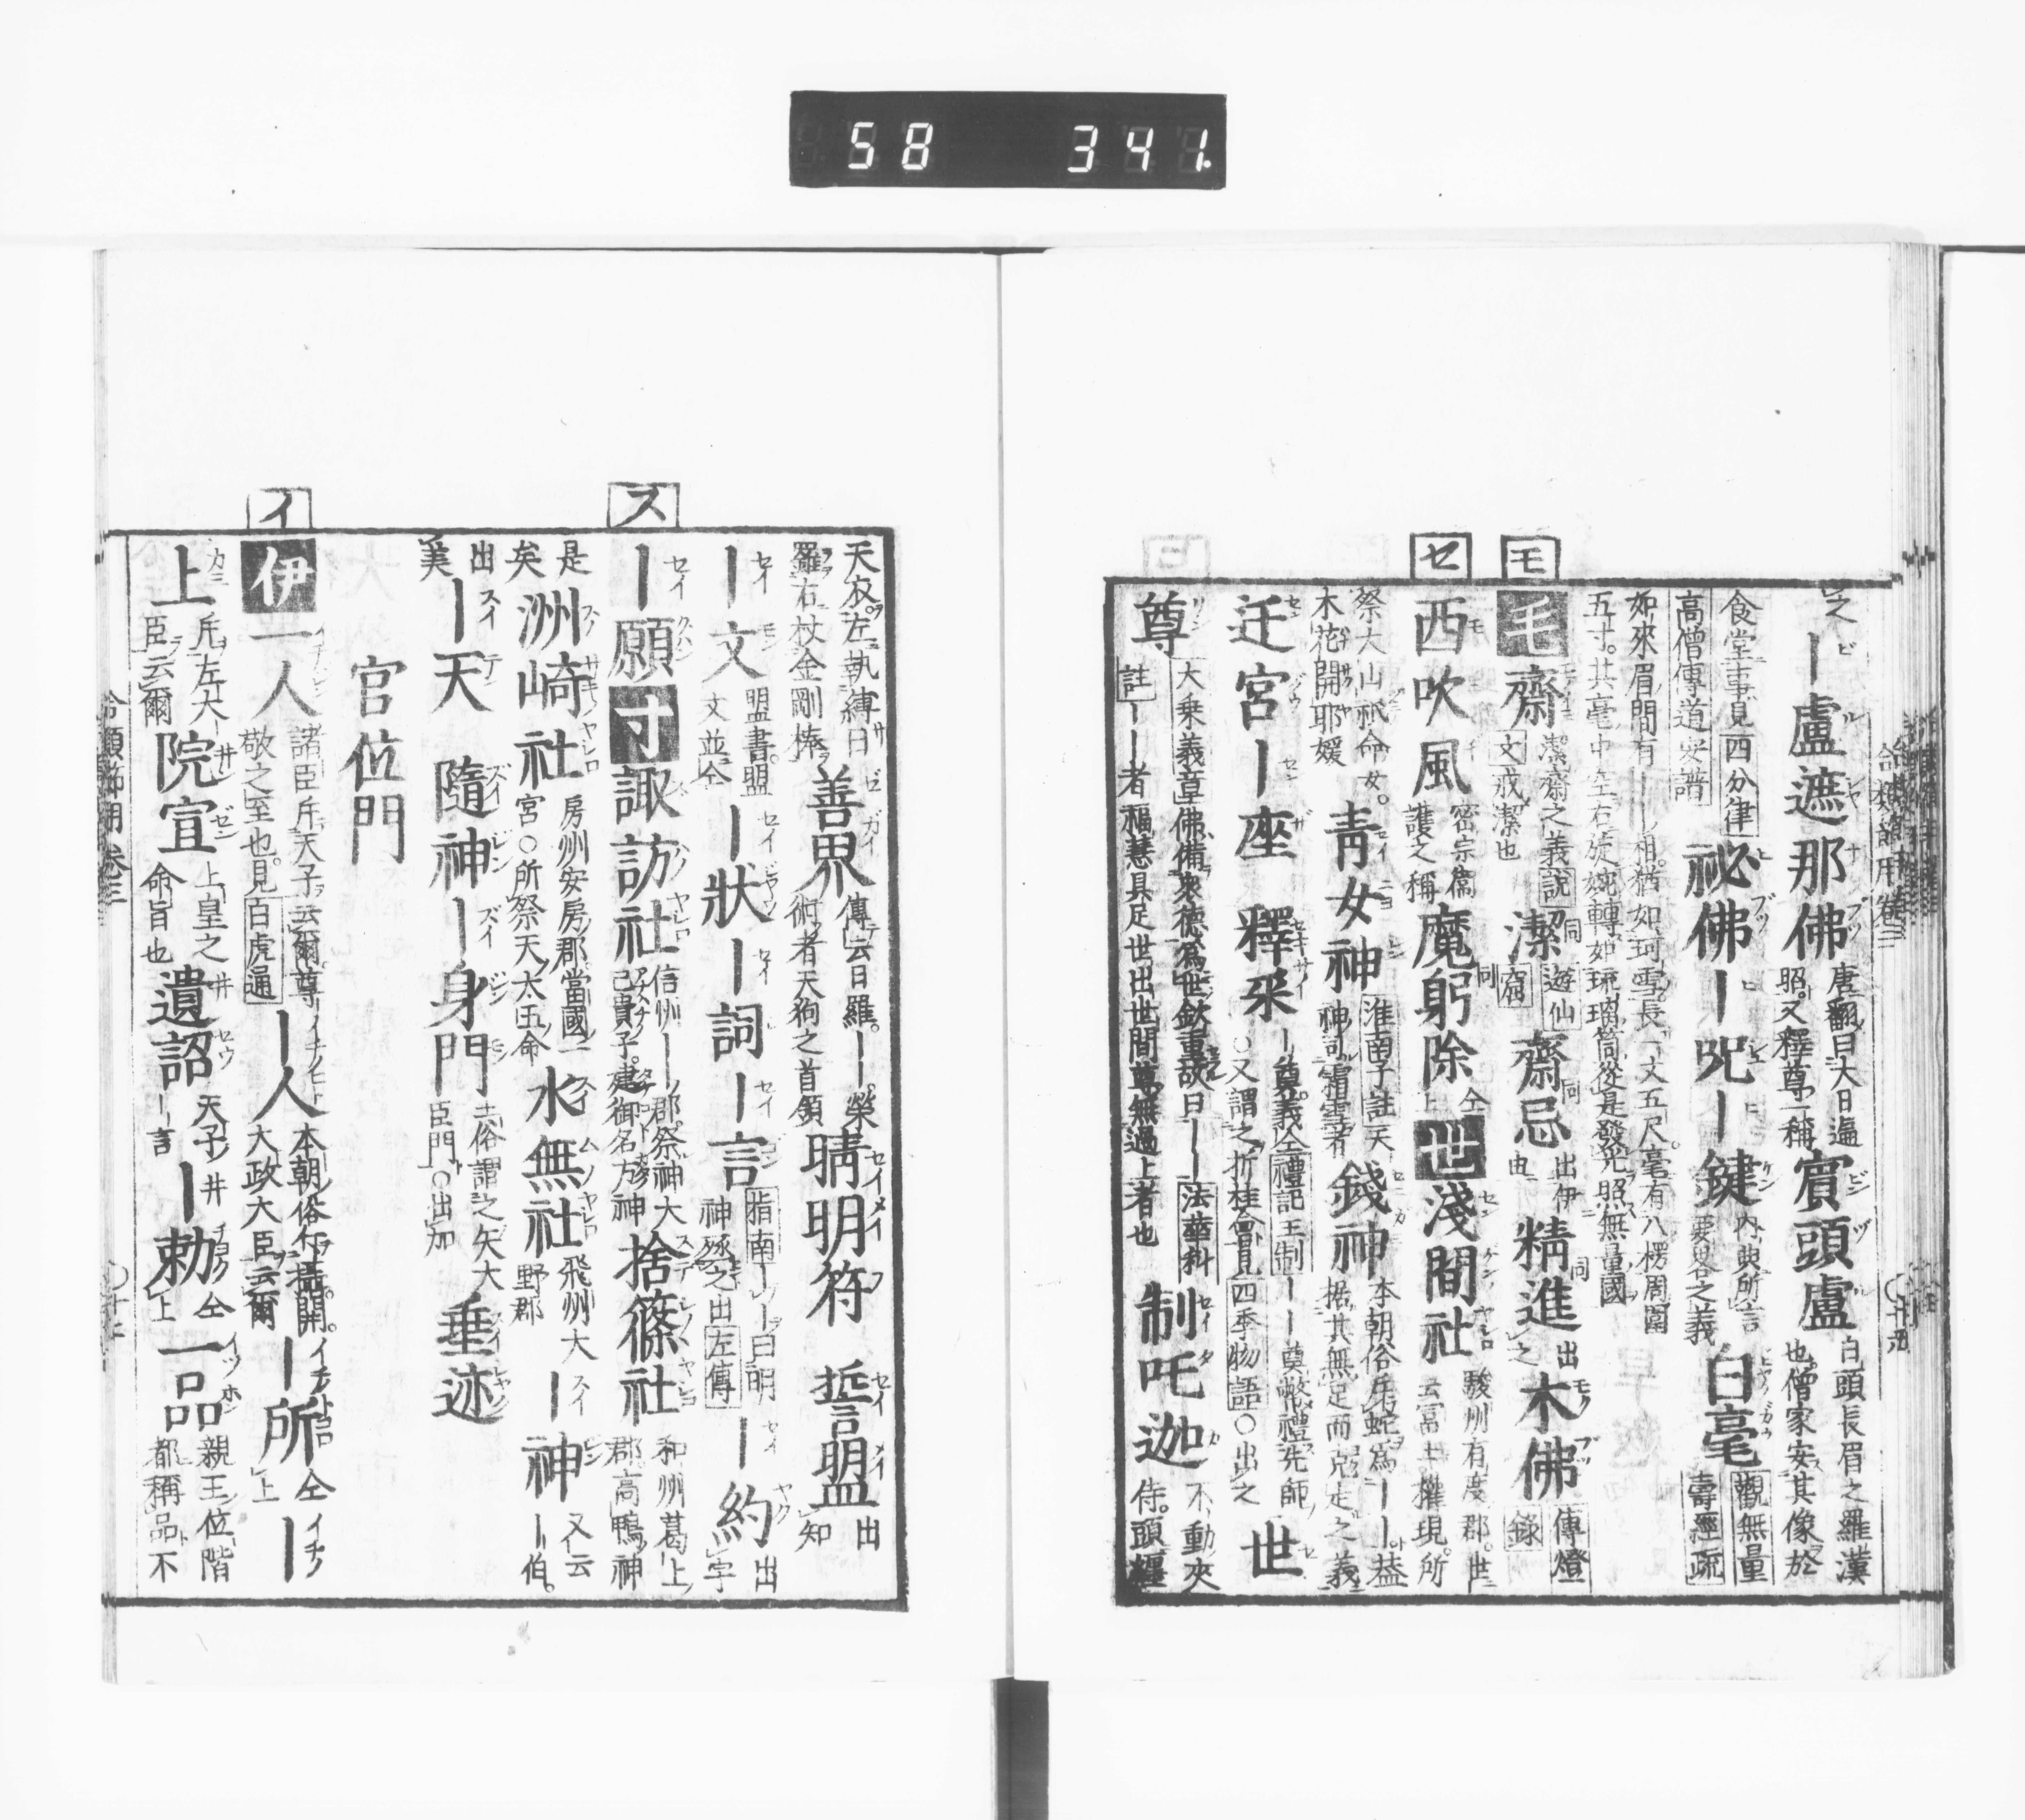 58 341
之｜盧遮那佛 唐翻曰大日遍照又釋尊一稱 賓頭盧 白頭長眉之羅漢也僧家安其像於
食堂事見四分律高僧傳道安譜 祕佛｜呪｜鍵 內典所言要畧之義 白毫 觀無量壽經疏
如來眉間有｜相猶如珂雪長一丈五尺毫有八楞周圍五寸其毫中空右旋婉轉如琉璃筒從是發光照無量國
モ
毛 齋 潔齋之義說文戒潔也 潔 遊仙窟 齋忌 出伊由 精進 出之 木佛 傳燈錄
セ
西吹風 密宗爲護之稱 魔躬除 仝上 世 淺間社 駿州有度郡世云富士權現所
祭大山祇命女木花開耶媛 青女神 淮南子註天神司霜雪者 錢神 本朝俗斥蛇爲｜｜蓋据其無足而兒走之義
迁宮｜座 釋采 ｜奠義仝禮記王制｜｜奠幣禮先師○又謂之折桂會見四季物語○出之 世
尊 大乗義章佛備衆德爲世欽重故曰｜｜法華科註｜｜者福慧具足世出世間尊無過上者也 制吒迦 不動夾侍頭纒
天衣左執縛日羅右杖金剛棒 善界 傳云日羅｜榮術者天狗之首領 晴明符 誓盟 出知
｜文 盟書盟文並仝 ｜狀｜詞｜言 指南｜｜曰明神殛之出左傳 ｜約 出字
ス
｜願 寸 諏訪社 信州｜｜郡祭神大己貴子建御名方神 捨篠社 和州葛上郡高鴨神
是矣 洲崎社 房州安房郡當國一宮○所祭天太玉命 水無社 飛州大野郡 ｜神 又云｜伯
出美 ｜天 隨神｜身門 土俗謂之矢大臣門○出加 垂迹
官位門
イ
伊 一人 諸臣斥天子云爾尊敬之至也見百虎通 ｜人 本朝俗斥攝開大政大臣云爾 ｜所 仝上 ｜
上 斥左大臣云爾 院宣 上皇之命旨也 遺詔 天子｜言 ｜勅 仝上 一品 親王位階都稱品不